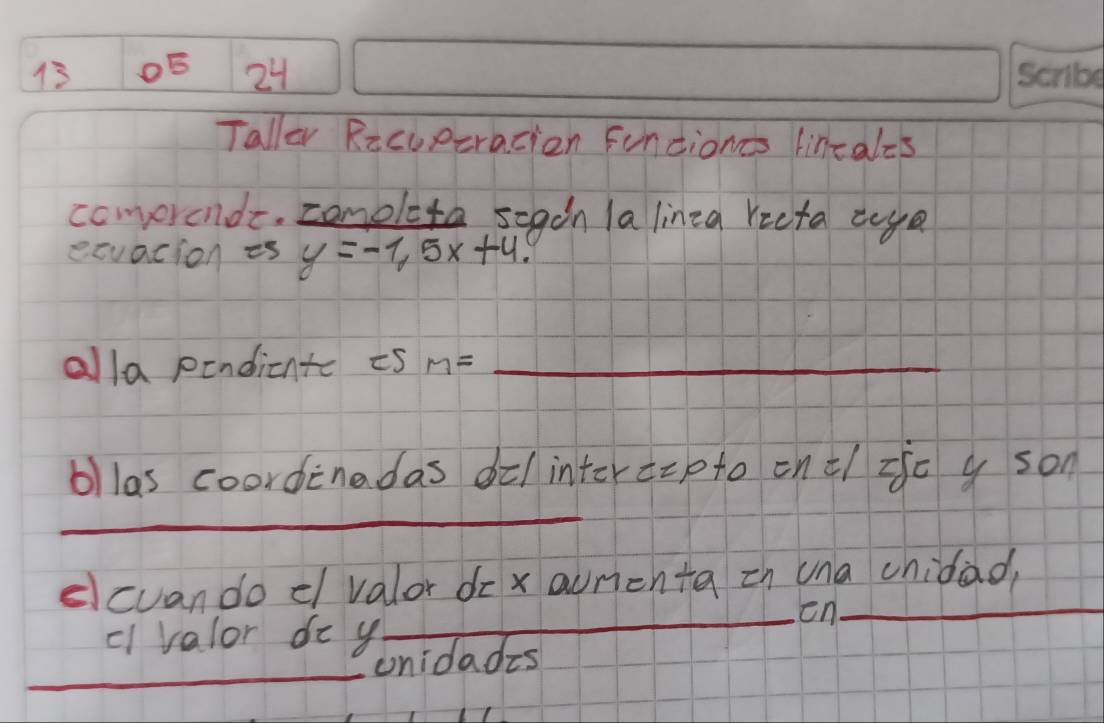 13 05 24
Scribe
Taller Recuperacion Funciones lineales
comprende. completa según la linea recta cuya
ecuacion es y = -1,5x + 4.
a) la pendiente es m= ____________
b) las coordenadas del intercepto en el eje y son
____________
c) cuando el valor de x aumenta en una unidad,
el valor de y ____________ en ____________
____________ unidades